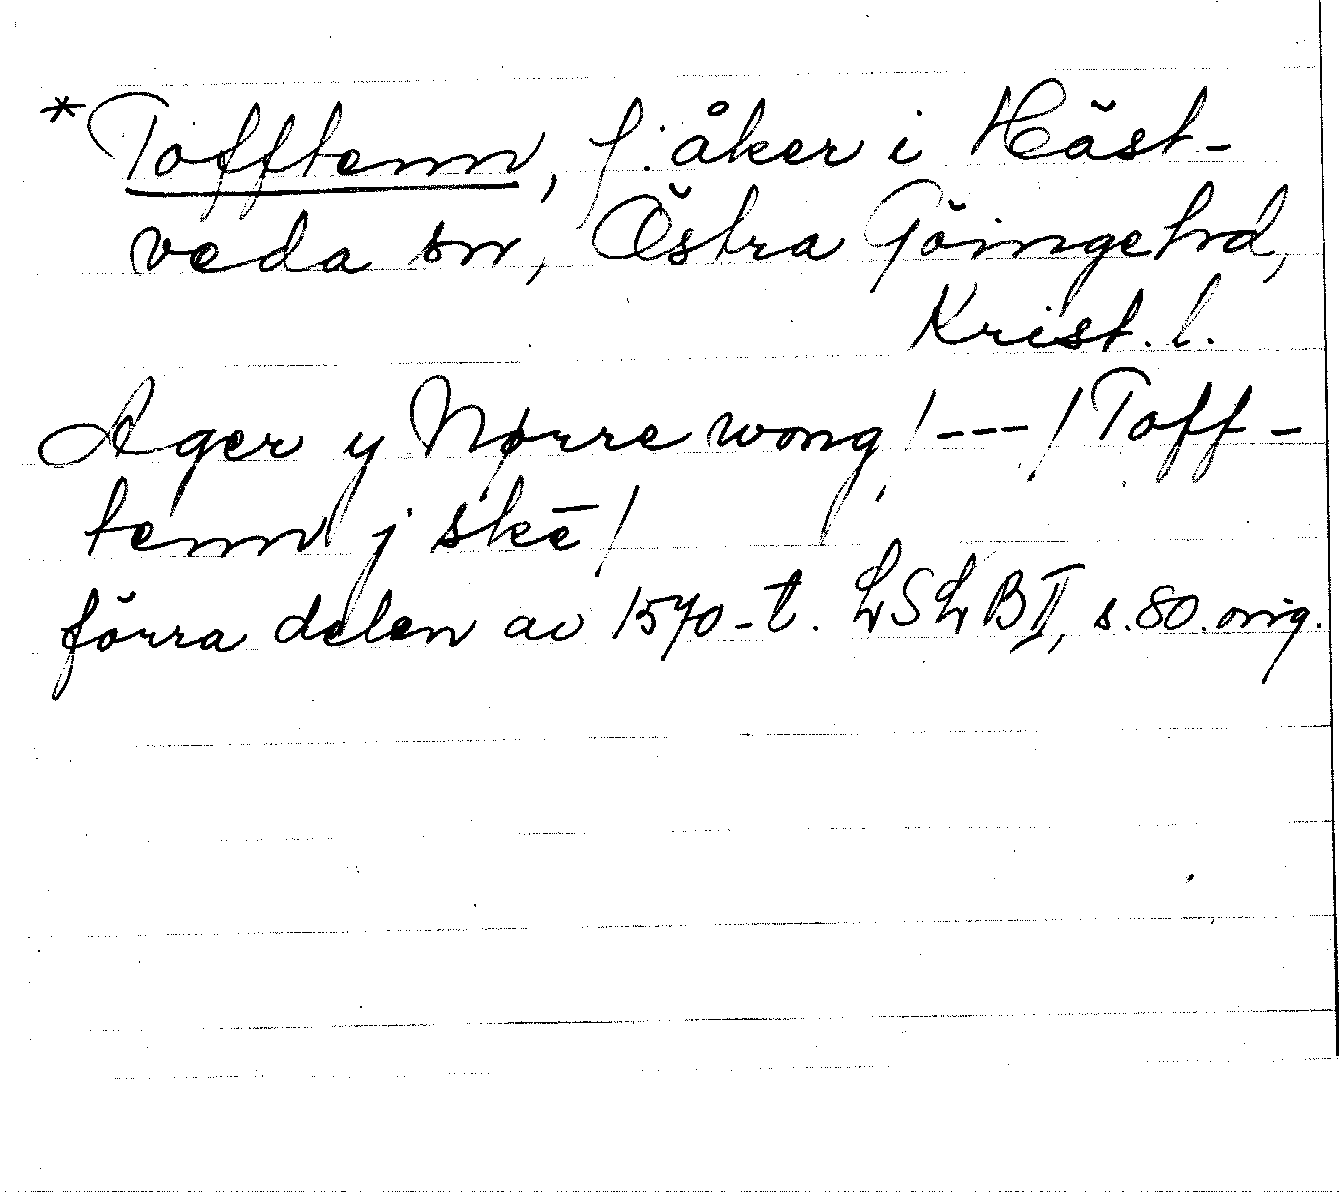 *Tofftenn, f. åker i Häst-
veda sn, Östra Göingehd,
Krist. l.
Ager y Nørre wong /---/ Toff-
tenn j skē /
förra delen av 1570-t. LSLB II, s. 80. orig.